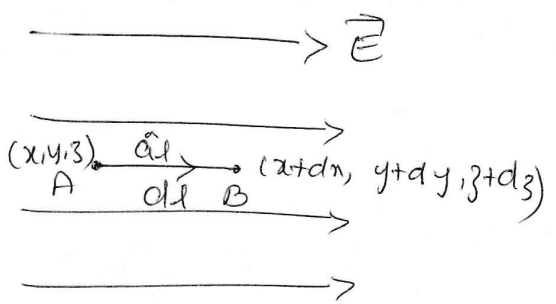 E
(x,y,z) âl (x+dx, y+dy, z+dz)
A dl B